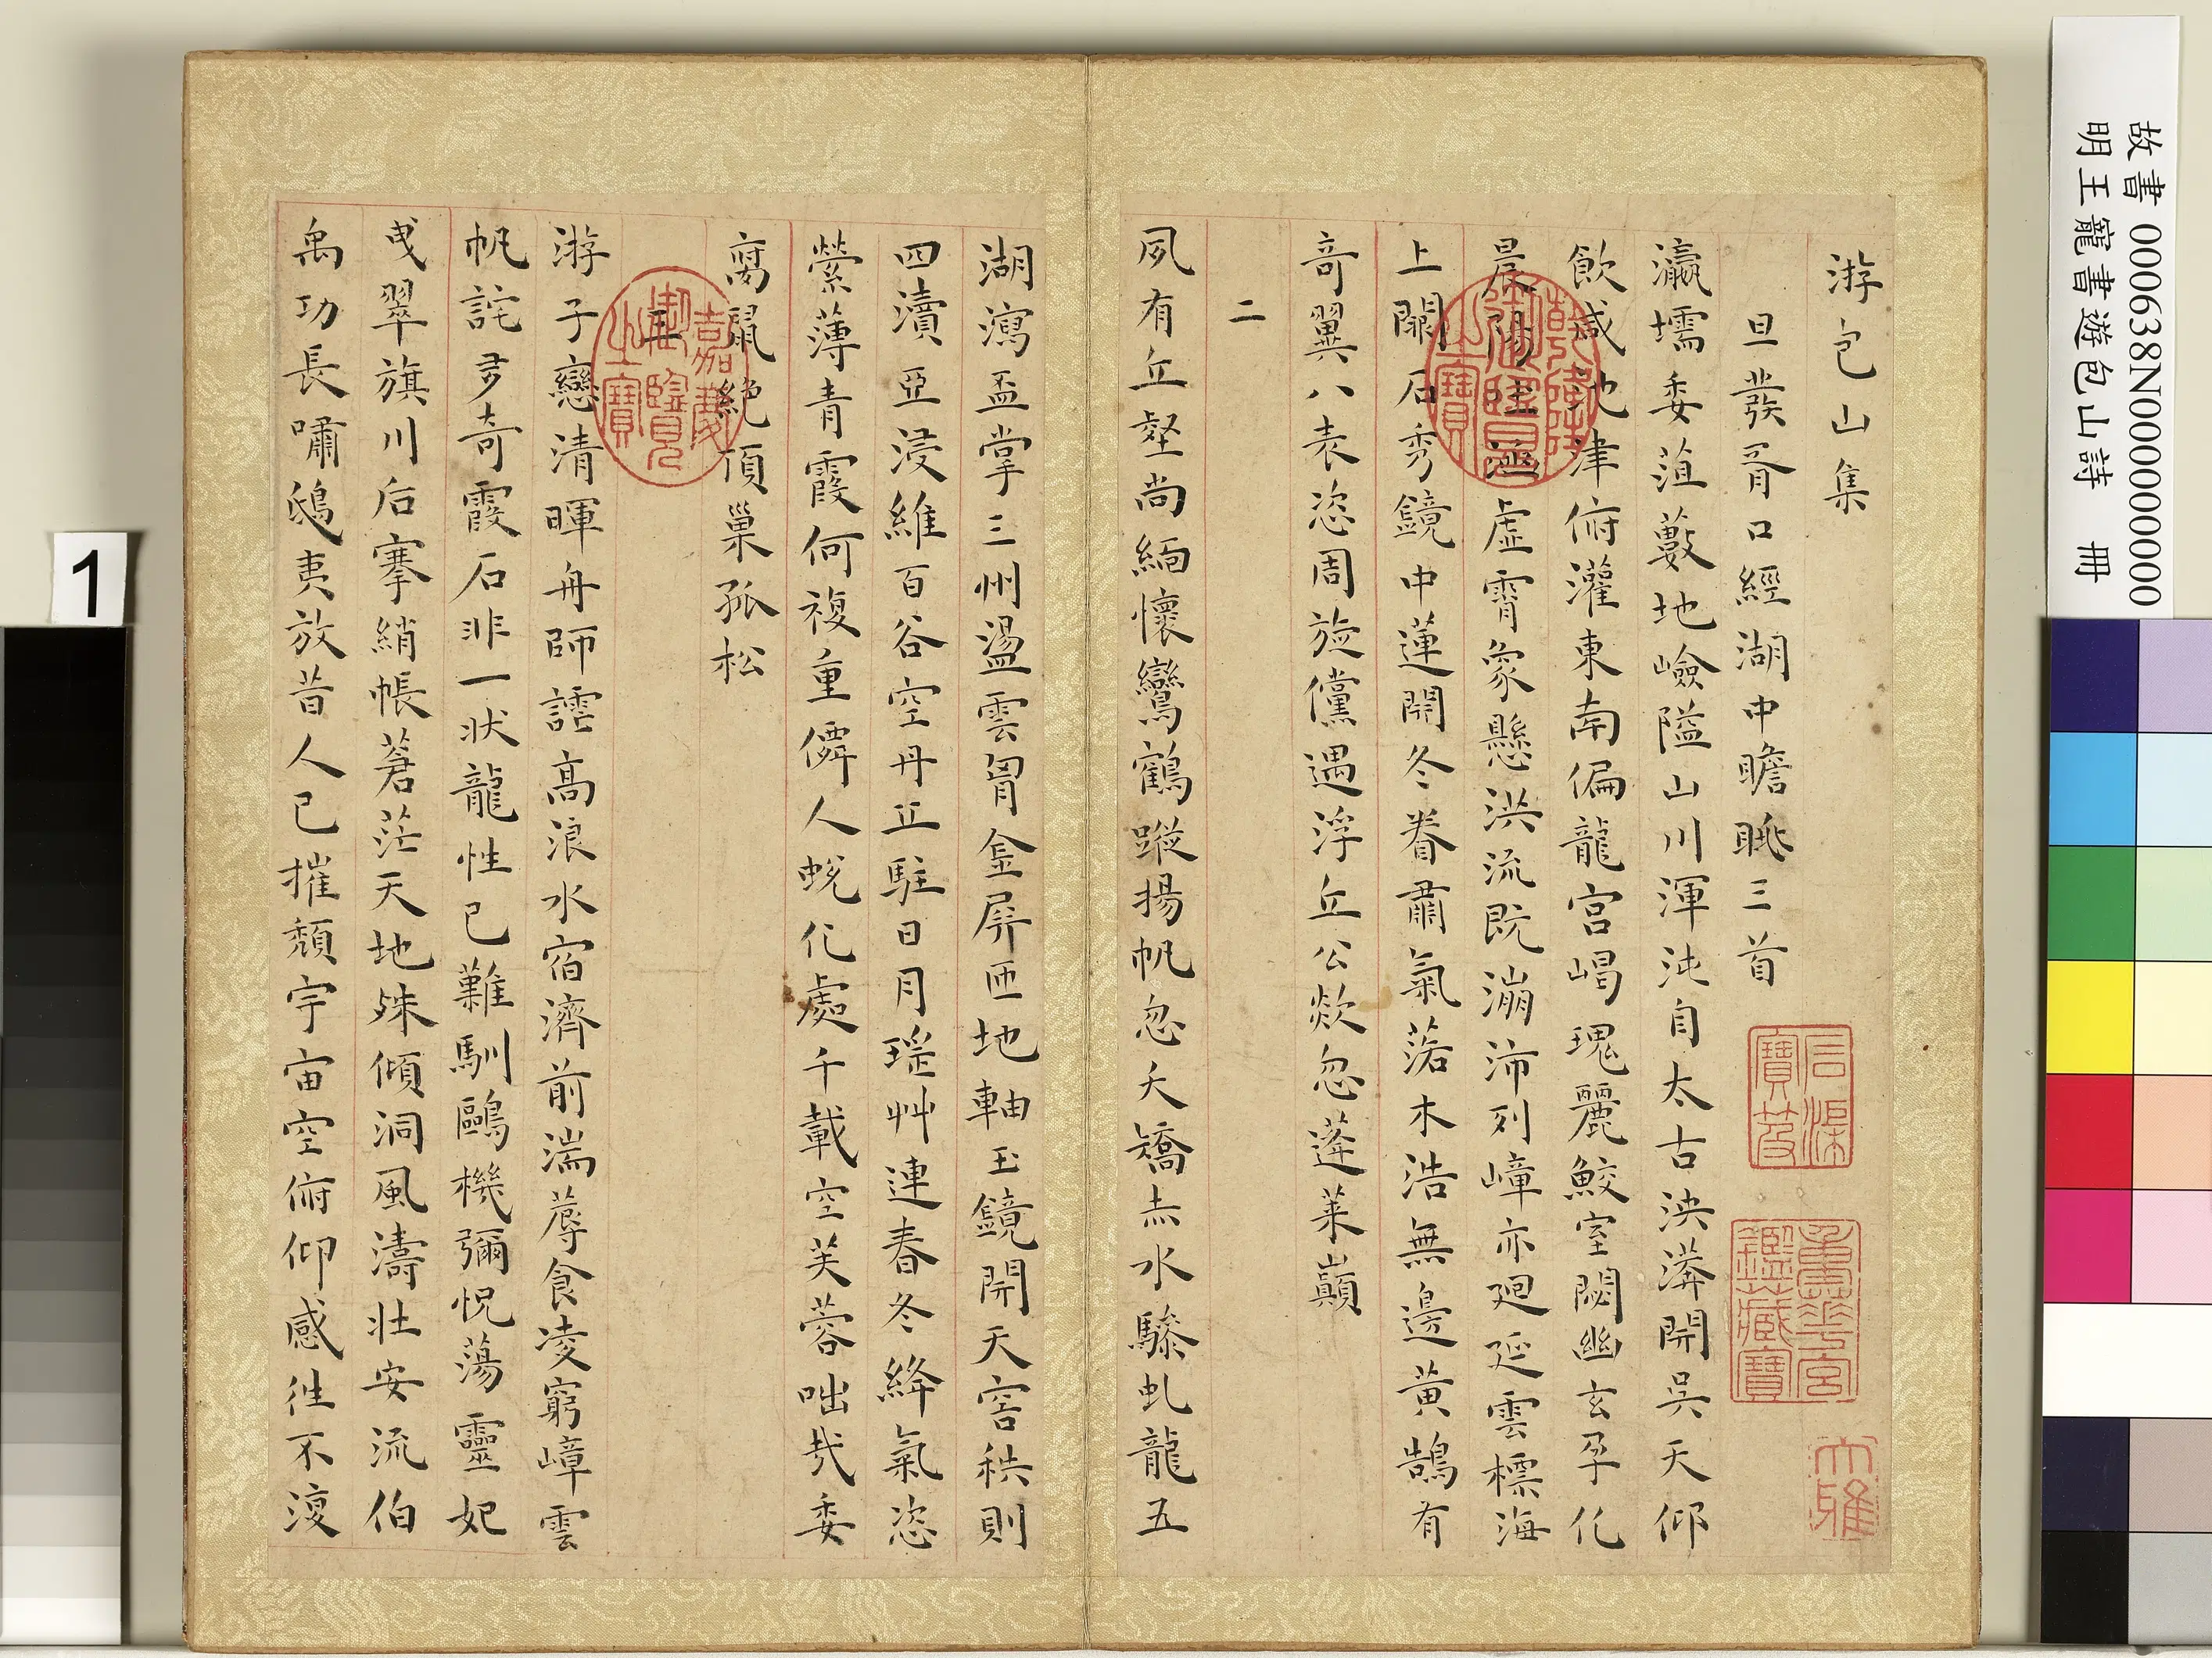 游包山集
旦發胥口經湖中瞻眺三首
瀛壖委菹藪地嶮隘山川渾沌自太古泱漭開吳天仰
飲咸池津俯灌東南偏龍宮嵑瑰麗鮫室閟幽玄孕化
晨陽上涵虛霄象懸洪流旣漰沛列嶂亦廻延雲標海
上闕石秀鏡中蓮開冬眷肅氣落木浩無邊黃鵠有
奇翼八表恣周旋儻遇浮丘公歘忽蓬萊巔
二
夙有丘壑尚緬懷鸞鶴蹤揚帆忽夭矯赤水驂虬龍五
湖瀉盃掌三州盪雲胷金屏匝地軸玉鏡開天窗秩則
四瀆亞浸維百谷空丹丘駐日月瑤艸連春冬絳氣恣
縈薄青霞何複重僊人蛻化處千載空芙蓉咄哉委
腐鼠絕頂巢孤松
三
游子戀清暉舟師譸高浪水宿濟前湍蓐食凌窮嶂雲
帆詫多奇霞石非一狀龍性已難馴鷗機彌怳蕩靈妃
曵翠旗川后搴綃帳蒼茫天地殊傾洞風濤壯安流伯
禹功長嘯鴟夷放昔人已摧頹宇宙空俯仰感往不復
乾隆御覽之寶
嘉慶御覽之寶
石渠寶笈
重華宮鑑藏寶
大雅
故書 000638N000000000
明王寵書遊包山詩 冊
1